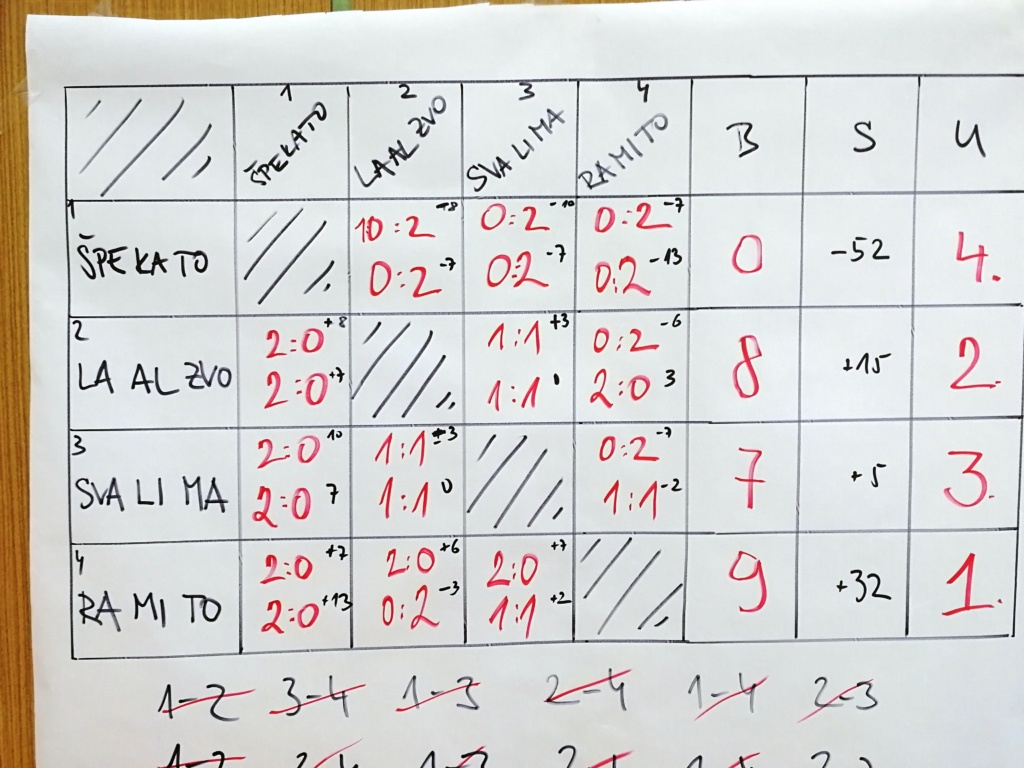 1 2 3 4
ŠPEKATO LAALZVO SVALIMA RAMITO B S U
1 ŠPEKATO 10:2 -8 0:2 -10 0:2 -7 0 -52 4.
0:2 -7 0:2 -7 0:2 -13
2 LAALZVO 2:0 +8 1:1 +3 0:2 -6 8 +15 2.
2:0 +7 1:1 0 2:0 3
3 SVALIMA 2:0 10 1:1 -3 0:2 -7 7 +5 3.
2:0 7 1:1 0 1:1 -2
4 RAMITO 2:0 +7 2:0 +6 2:0 +7 9 +32 1.
2:0 +13 0:2 -3 1:1 +2
1-2 3-4 1-3 2-4 1-4 2-3